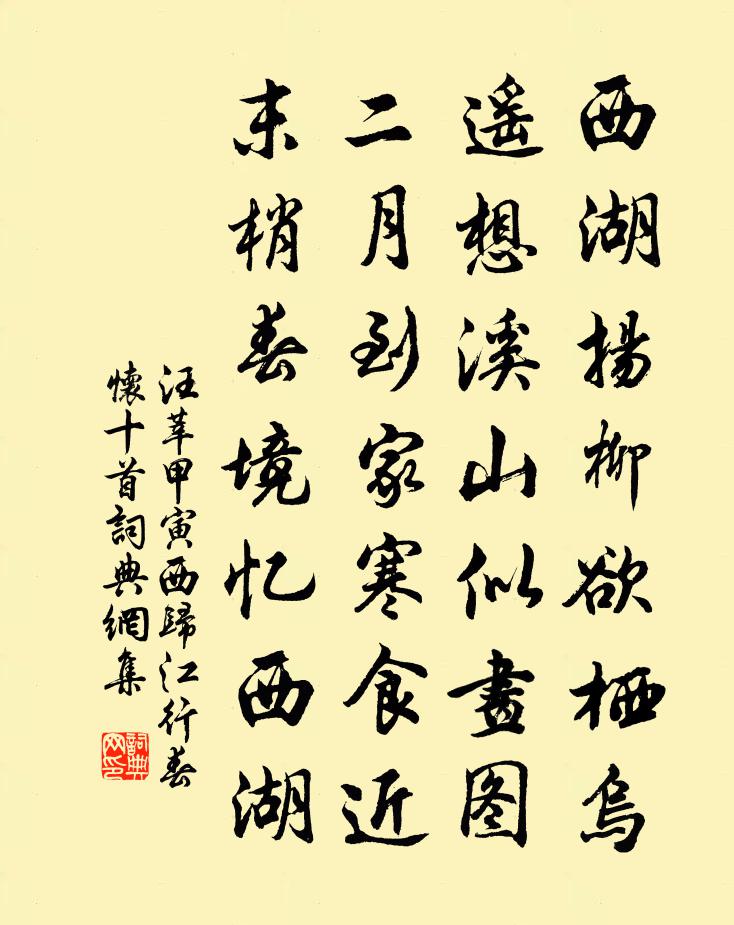 西湖揚柳欲栖烏
遥想溪山似畫图
二月到家寒食近
末梢春境忆西湖
汪莘甲寅西歸江行春
懷十首詞典網集
詞典
网印